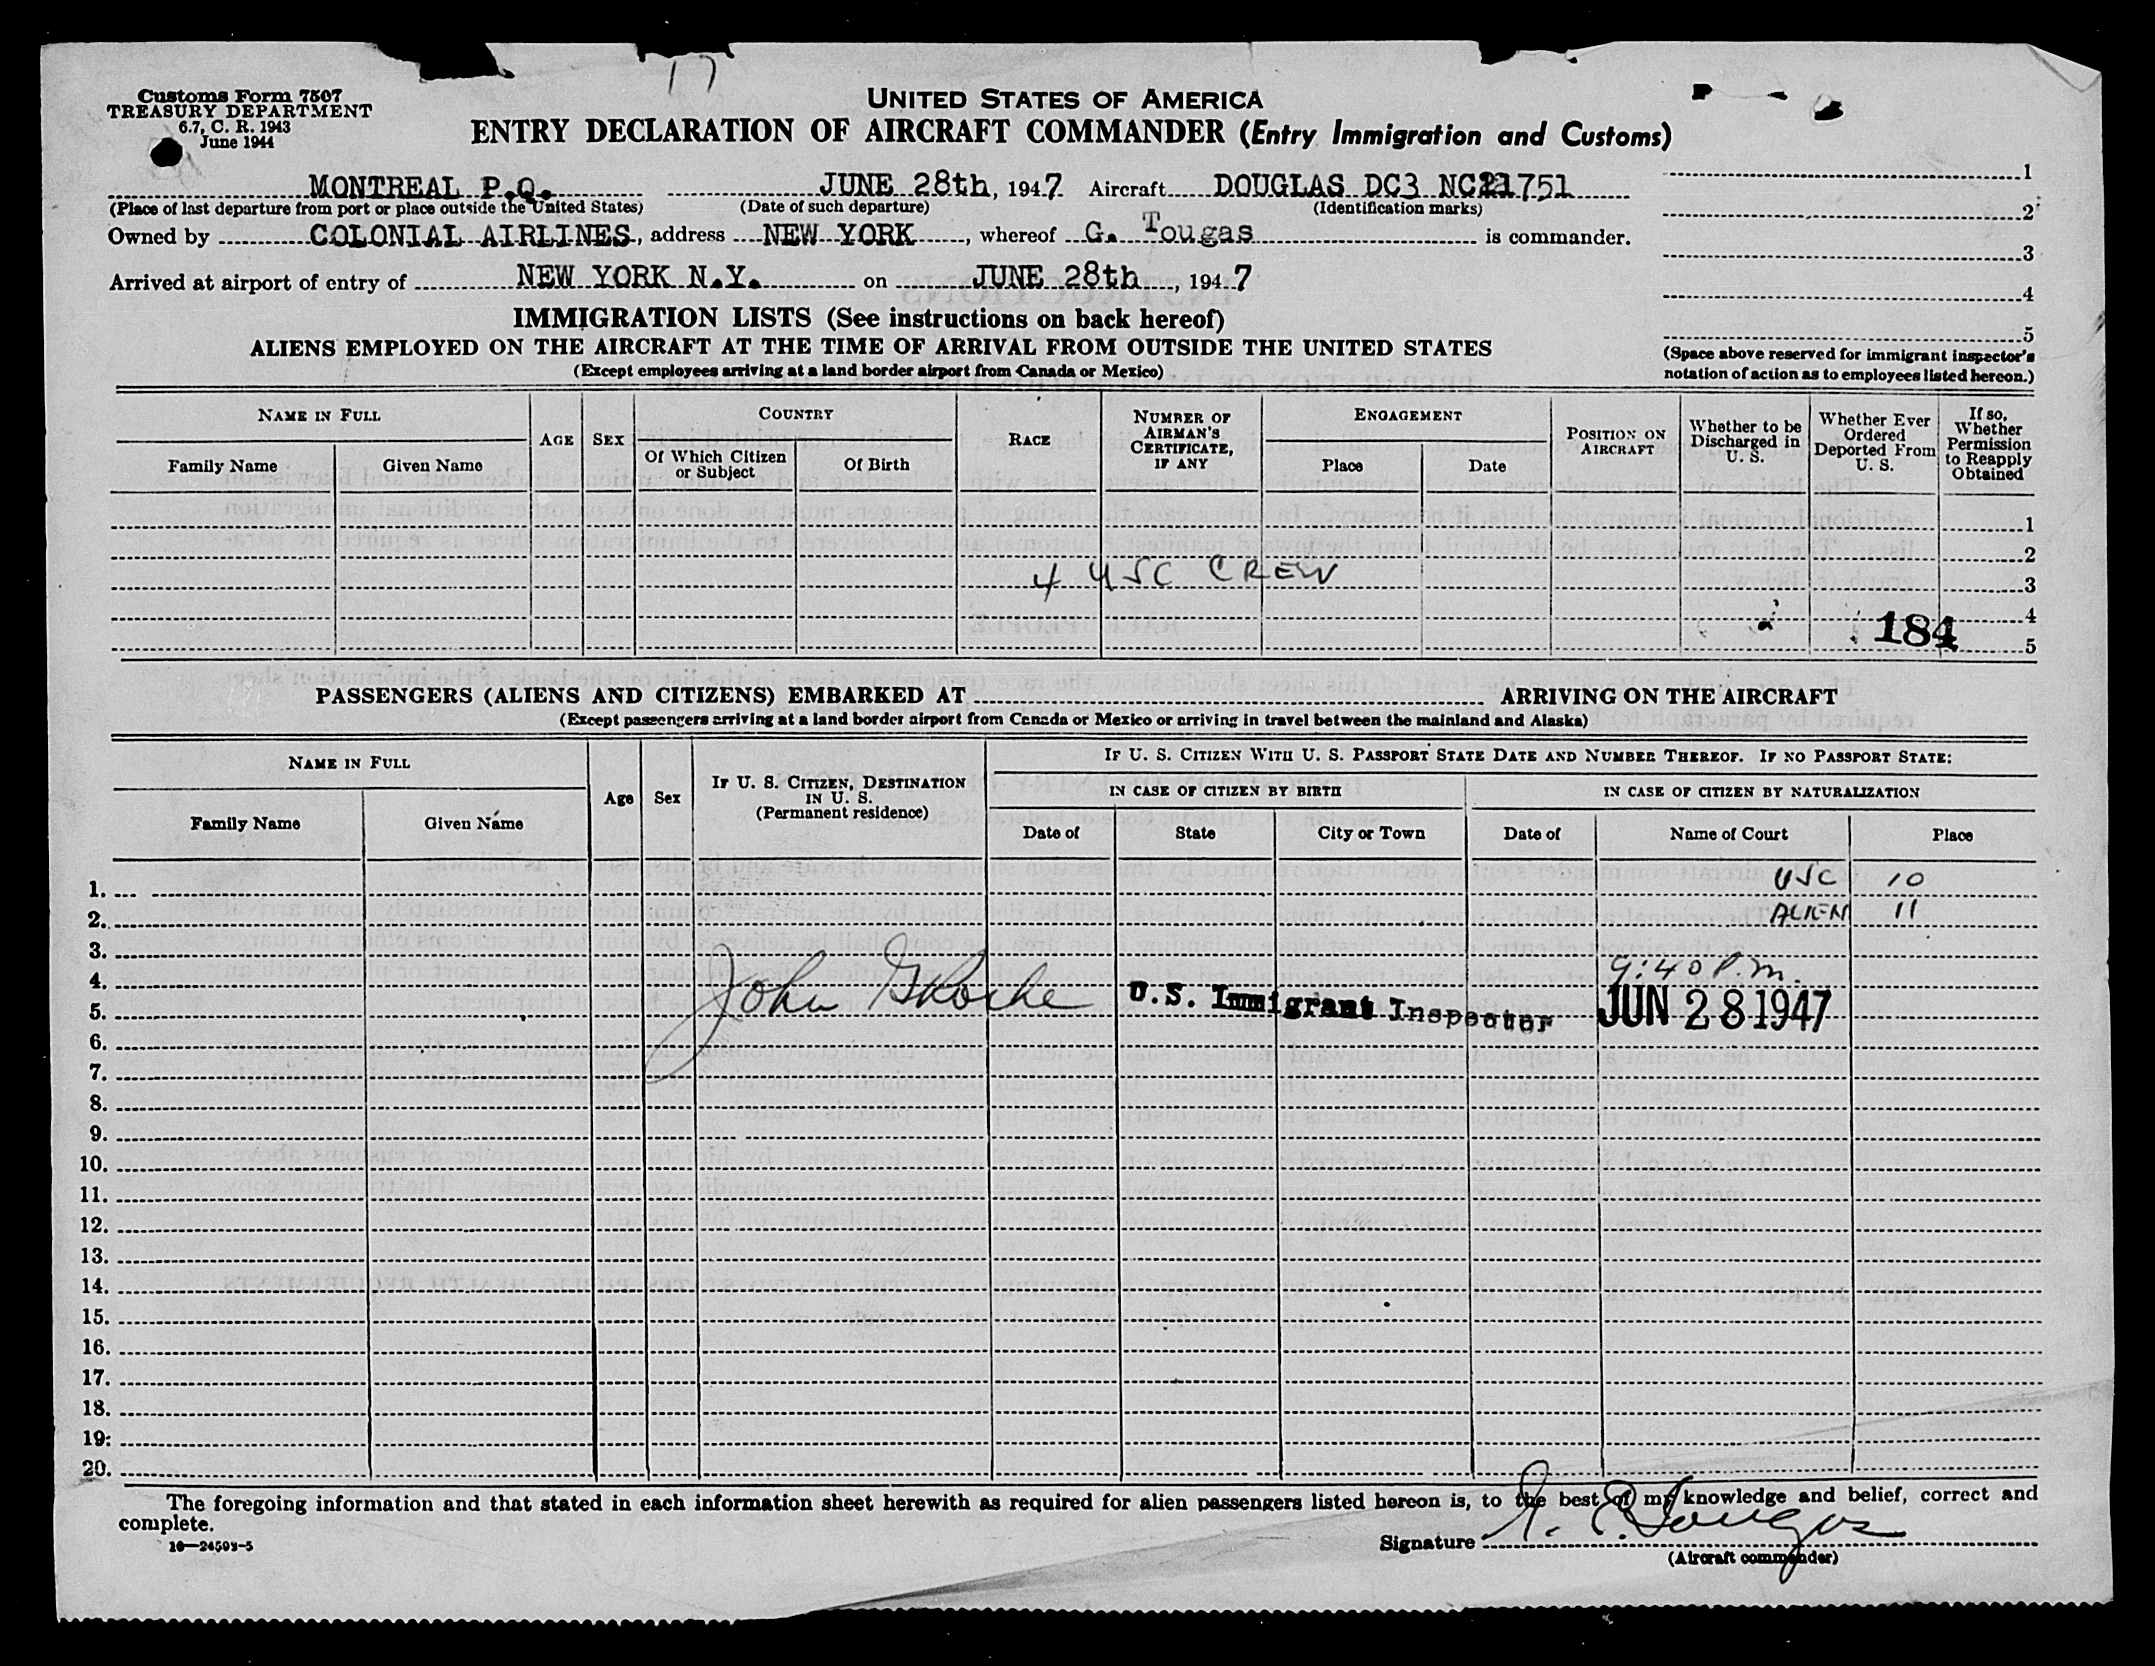 17
Customs Form 7507
TREASURY DEPARTMENT
6.7, C. R. 1943
June 1944
UNITED STATES OF AMERICA
ENTRY DECLARATION OF AIRCRAFT COMMANDER (Entry Immigration and Customs)
MONTREAL P.Q. JUNE 28th, 1947 Aircraft DOUGLAS DC3 NC21751
(Place of last departure from port or place outside the United States) (Date of such departure) (Identification marks)
Owned by COLONIAL AIRLINES, address NEW YORK, whereof G. Tougas is commander.
Arrived at airport of entry of NEW YORK N.Y. on JUNE 28th, 1947
1
2
3
4
5
(Space above reserved for immigrant inspector's
notation of action as to employees listed hereon.)
IMMIGRATION LISTS (See instructions on back hereof)
ALIENS EMPLOYED ON THE AIRCRAFT AT THE TIME OF ARRIVAL FROM OUTSIDE THE UNITED STATES
(Except employees arriving at a land border airport from Canada or Mexico)
NAME IN FULL
Family Name Given Name
AGE SEX
COUNTRY
Of Which Citizen
or Subject
Of Birth
RACE
NUMBER OF
AIRMAN'S
CERTIFICATE,
IF ANY
ENGAGEMENT
Place Date
POSITION ON
AIRCRAFT
Whether to be
Discharged in
U. S.
Whether Ever
Ordered
Deported From
U. S.
If so,
Whether
Permission
to Reapply
Obtained
1
2
4 USC CREW
3
4
184
5
PASSENGERS (ALIENS AND CITIZENS) EMBARKED AT ARRIVING ON THE AIRCRAFT
(Except passengers arriving at a land border airport from Canada or Mexico or arriving in travel between the mainland and Alaska)
NAME IN FULL
Family Name Given Name
Age Sex
IF U. S. CITIZEN, DESTINATION
IN U. S.
(Permanent residence)
IF U. S. CITIZEN WITH U. S. PASSPORT STATE DATE AND NUMBER THEREOF. IF NO PASSPORT STATE:
IN CASE OF CITIZEN BY BIRTH IN CASE OF CITIZEN BY NATURALIZATION
Date of State City or Town Date of Name of Court Place
1. USC 10
2. ALIEN 11
3.
4. 9:40 P.m.
5. John U.S. Immigrant Inspector JUN 28 1947
6.
7.
8.
9.
10.
11.
12.
13.
14.
15.
16.
17.
18.
19.
20.
The foregoing information and that stated in each information sheet herewith as required for alien passengers listed hereon is, to the best of my knowledge and belief, correct and
complete.
16—24593-5
Signature G. E. Tougas
(Aircraft commander)